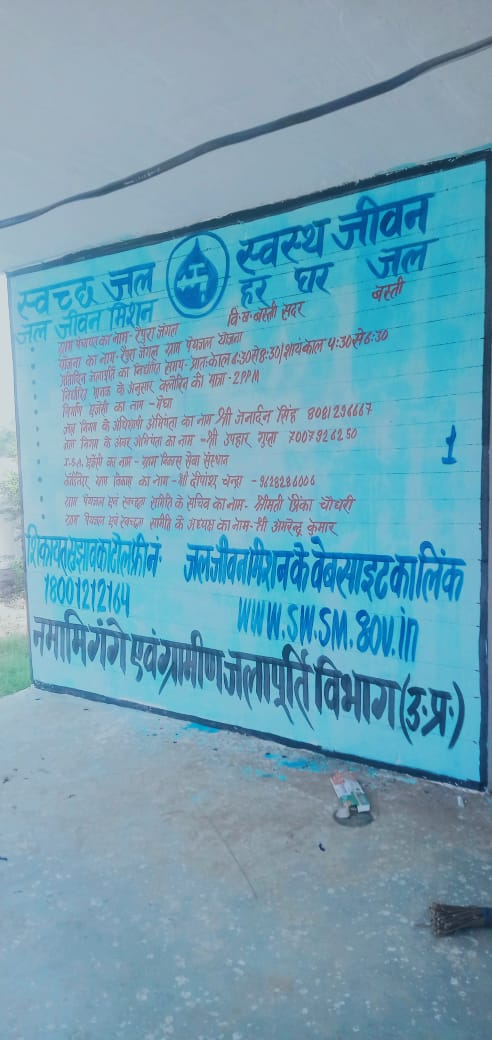 स्वच्छ जल स्वस्थ जीवन
जल जीवन मिशन हर घर जल
वि.ख.बस्ती सदर बस्ती
ग्राम पंचायत का नाम- रैपुरा जंगल
योजना का नाम- रैपुरा जंगल ग्राम पेयजल योजना
प्रतिदिन जलापूर्ति का निर्धारित समय- प्रातःकाल 6:30से8:30/शायंकाल 4:30से6:30
निर्धारित मानक के अनुसार क्लोरिन की मात्रा-2PPM
निर्माण एजेंसी का नाम - मेघा
जल निगम के अधिशाषी अभियंता का नाम श्री जनार्दन सिंह 8081296667
जल निगम के अवर अभियंता का नाम -श्री उपहार गुप्ता 7007926250
I.S.A. एजेंसी का नाम - ग्राम विकास सेवा संस्थान
ग्राम विकास का नाम -श्री दीपांश चन्द्रा -9628286006
ग्राम पेयजल एवं स्वच्छता समिति के सचिव का नाम- श्रीमती प्रिंका चौधरी
ग्राम पेयजल एवं स्वच्छता समिति के अध्यक्ष का नाम-श्री अमरेन्द्र कुमार
1
शिकायत/सुझाव का टोल फ्री नं० जल जीवन मिशन के वेबसाइट का लिंक
18001212164 WWW.SWSM.gov.in
नमामि गंगे एवं ग्रामीण जलापूर्ति विभाग (उ.प्र.)